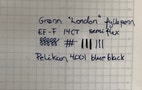 Grønn "London" fyllepenn
EF-F 14CT semi flux
Pelikan 4001 blue black